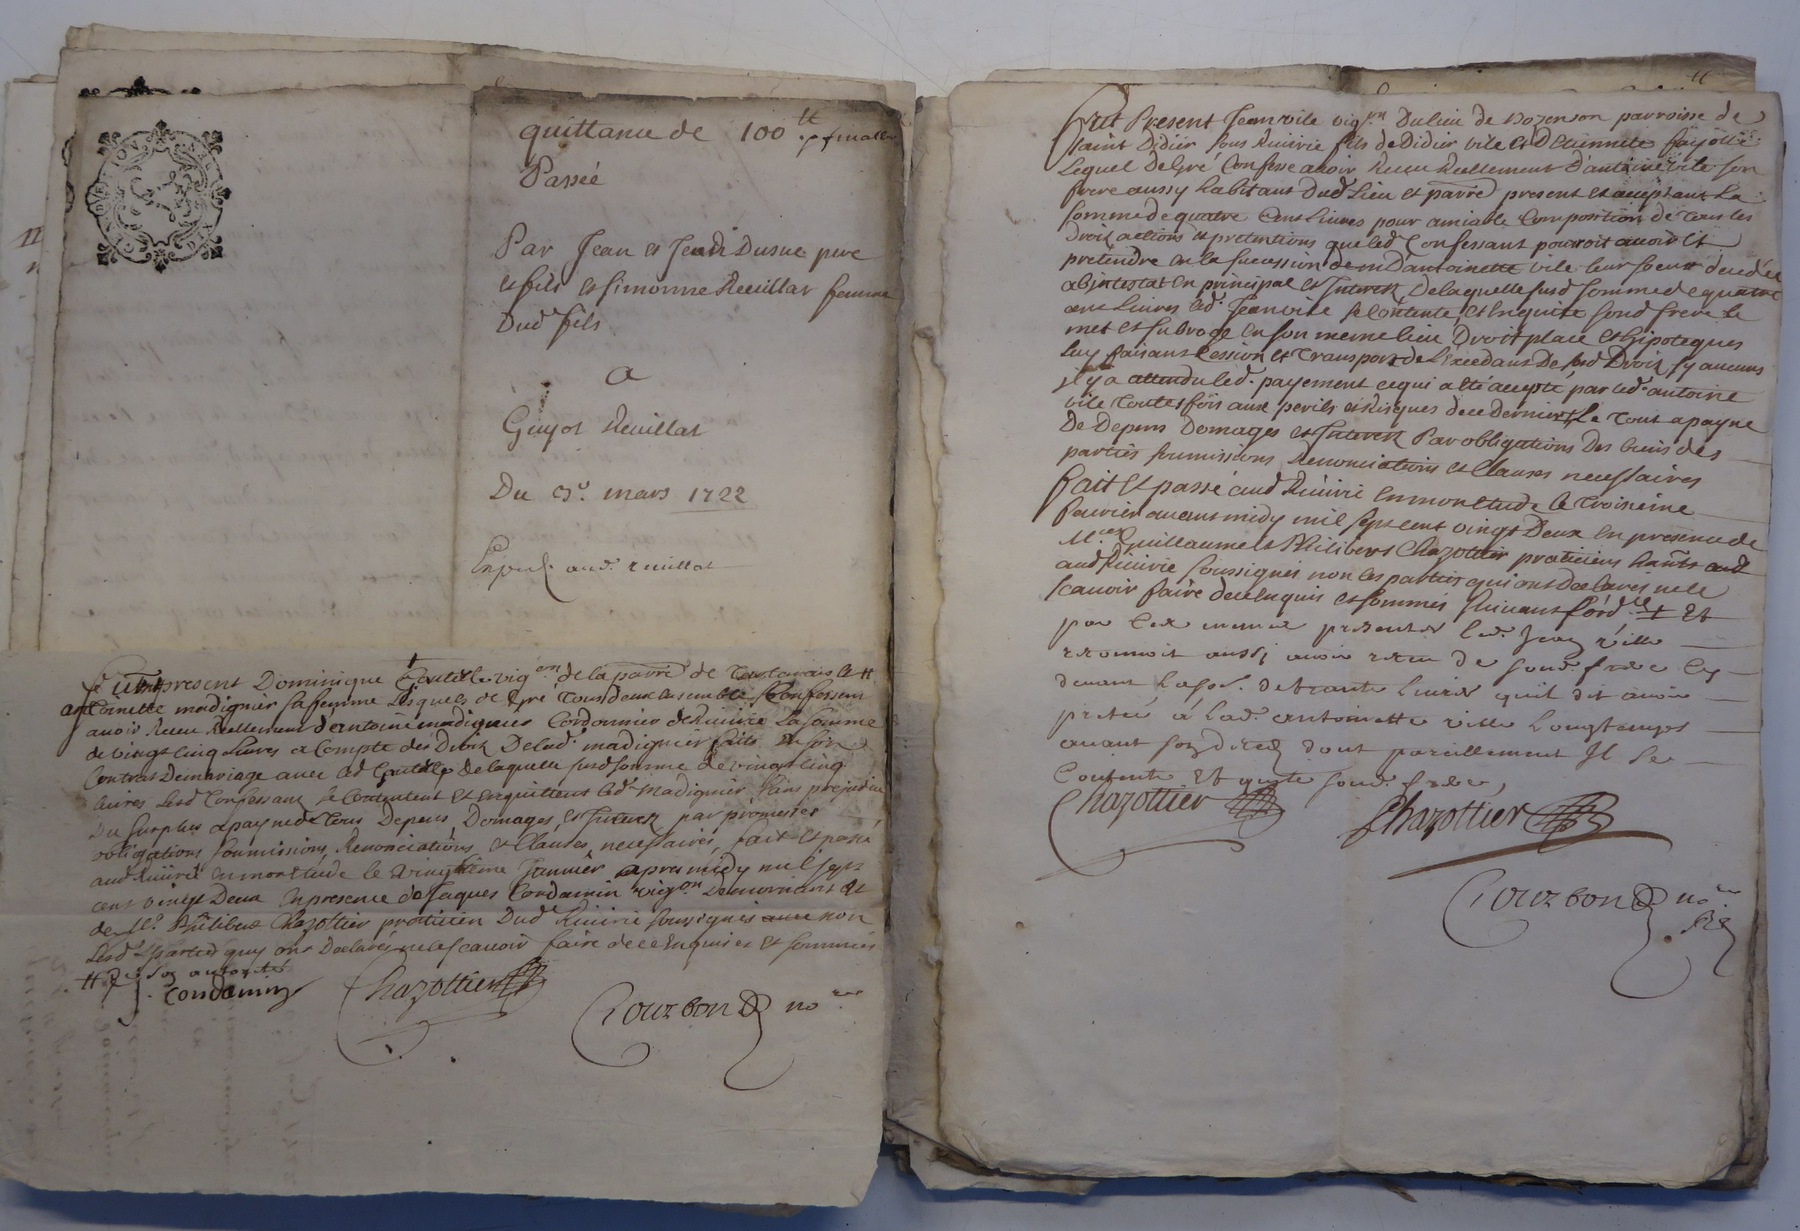 quittance de 100 tt
Passée
Par Jean et Jean Dusuc pere
et fils et Simonne Reuillat femme
Dud fils
a
Guyot Reuillat
Du 3e mars 1722
aud. reuillat
fut present Dominique vigon de la parre de
Anthoinette madignier sa femme Lesquels de gré tous deux ensemble Confessent
avoir Receu Reellement d'antoine madignier Cordonnier de Riuirie La somme
de vingt cinq Liures a Compte des Droitz De lad. madignier faits en son
Contrat Demariage avec led delaquelle susd somme de vingt cinq
Liures Lesd Confessans se Contentent et enquittent led. madignier sans prejudice
Du surplus apayne de tous Depens, Domages, et Interetz par promesses
obligations soumissions, Renonciations et Clauses, necessaires, fait et passé
aud Riuirie en mon etude le vingtième Januier apres midy mil sept
cent vingt Deux en presence de Jaques Condamin vigon et
de Me. Philibert Chazottier praticien Dud Riuirie soussignés non
Lesd parties quy ont Declarés ne le scauoir faire de ce Enquises et sommées
tt de son autorité
J. Condamin Chazottier Courbon no.re
fut Present Jean vile vigon Du lieu de parroisse de
saint Didier sous Riuirie fils de Didier vile et D'Etiennette fayolle
Lequel de gré Confesse auoir Receu Reellement d'antoine vile son
frere aussy habitant Dud Lieu et parre present et acceptant La
somme de quatre Cent Liures pour amiable Composition de tous les
Droitz actions et pretentions que led Confessant pourroit auoir et
pretendre en la succession d'antoinette vile leur soeur decedée
abintestat en principal et Interetz Delaquelle susd somme de quatre
cent Liures led. Jean vile se Contente, et enquite sond frere le
met et subroge en son meme lieu Droit place et hipoteques
luy faisant Cession et transport de L'excedant De sesd Droitz sy aucuns
il y a attendu led. payement ce qui a eté accepté par led. antoine
vile toutes fois aux perils et Risques de ce dernier, Le tout apayne
De Depens Domages et Interetz Par obligations Des biens des
parties soumissions Renonciations et Clauses necessaires
fait et passé aud Riuirie en mon etude le troisieme
feurier auant midy mil sept cent vingt Deux en presence de
Mes. Guillaume et Philibert Chazottier praticiens
aud Riuirie soussignés non les parties qui ont Declarés ne le
scauoir faire de ce enquis et sommés suiuant l'ord.ce + Et
par Ces mesmes presentes led. Jean ville
reconnoit aussi avoir receu de sond. frere Cy
deuant la som. de trante liures quil dit auoir
pretée á lad. antoinette ville longtemps
auant son deces dont pareillement Il se
Contente Et quite sond. frere,
Chazottier Chazottier
Courbon no.re